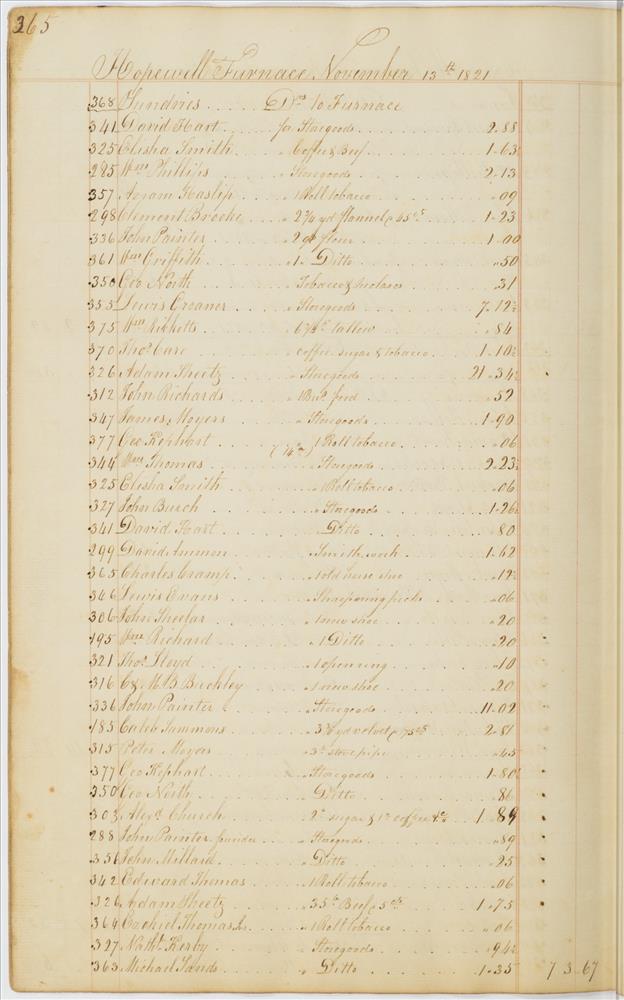 365
Hopewell Furnace November 13th 1821
368 Sundries Drs to Furnace
341 David Hart for Storegoods 2.88
325 Elisha Smith " Coffee & Beef 1.63
285 Wm Phillips " Storegoods 2.13
357 Haslip " 1 Roll tobacco .09
298 Clement Brooke " 2 3/4 yd flannel @ 45 cts 1.23
336 John Painter " 2 qr flour 1.00
361 Wm Griffith " 1 " Ditto .50
350 Geo North " Tobacco & .31
355 Lewis " Storegoods 7.12½
375 Wm Ricketts " tallow .84
370 Thos Care " coffee sugar & tobacco 1.10½
326 Adam Sheetz " Storegoods 21.34½
312 John Richards " 1 Bus. feed .52
347 James Moyers " Storegoods 1.90
377 Geo Kephart 1 Roll tobacco .06
344 Thomas " Storegoods 2.23½
325 Elisha Smith " 1 Roll tobacco .06
327 John Burch " Storegoods 1.26½
341 David Hart " Ditto .80
299 David " Smith work 1.62
365 Charles Cramp " 1 old horse shoe .12½
346 Lewis Evans " Sharpening picks .06
306 John Sheeler " 1 new shoe .20
195 Wm Richard " 1 Ditto .20
321 Thos Lloyd " 1 open ring .10
316 & M B Buckley " 1 new shoe .20
336 John Painter " Storegoods 11.02
185 Caleb Sammons " yd velvet @ 75 cts 2.81
315 Peter Moyer " stove pipe .45
377 Geo Kephart " Storegoods 1.80
350 Geo North " Ditto .86
303 Alexr Church 2 lb sugar & 1 lb coffee 1.89
288 John Painter " Storegoods .89
356 John Millard " Ditto .25
342 Edward Thomas " 1 Roll tobacco .06
326 Adam Sheetz " 35 lb Beef @ 5 cts 1.75
364 Ezekiel Thomas Jr. " 1 Roll tobacco .06
327 Nathl Kerby " Storegoods .94½
363 Michael Sands " Ditto 1.35 73.67